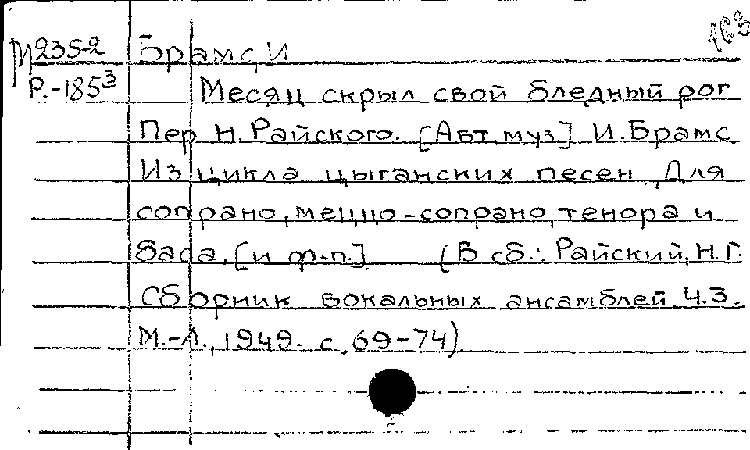 М235-2 Брамс, И
Р.-185³ Месяц скрыл свой бледный рог
Пер Н. Райского. [Авт. муз] И. Брамс
Из цикла цыганских песен Для
сопрано, меццо-сопрано, тенора и
баса, [и ф-п.] (В сб.: Райский, Н.Г.
Сборник вокальных ансамблей. Ч.3.
М.-Л., 1949. с. 69-74)